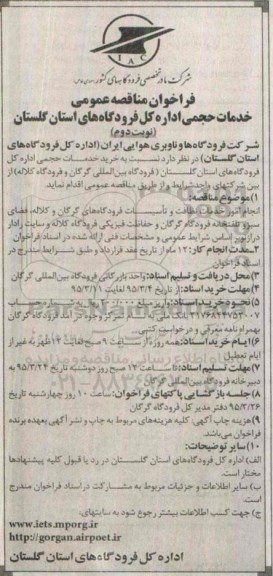 IAC
شرکت مادر تخصصی فرودگاههای کشور
فراخوان مناقصه عمومی
خدمات حجمی اداره کل فرودگاه‌های استان گلستان
(نوبت دوم)
شرکت فرودگاه‌ها و ناوبری هوایی ایران (اداره کل فرودگاه‌های
استان گلستان) در نظر دارد نسبت به خرید خدمات حجمی اداره کل
فرودگاه‌های استان گلستان (فرودگاه بین‌المللی گرگان و فرودگاه کلاله) از
بین شرکتهای واجد شرایط و از طریق مناقصه عمومی اقدام نماید
۱) موضوع مناقصه:
انجام امور خدمات نظافت و تأسیسات فرودگاه‌های گرگان و کلاله، فضای
سبز و گلخانه فرودگاه گرگان و حفاظت فیزیکی فرودگاه کلاله و سایت رادار
براساس شرایط عمومی و مشخصات فنی ارائه شده در اسناد فراخوان
۲) مدت انجام کار: ۱۲ ماه از تاریخ عقد قرارداد و طبق شرایط مندرج در
اسناد فراخوان
۳) محل دریافت و تسلیم اسناد: واحد بازرگانی فرودگاه بین‌المللی گرگان
۴) مهلت خرید اسناد: از تاریخ ۹۵/۳/۴ لغایت ۹۵/۳/۱۱
۵) نحوه خرید اسناد: واریز مبلغ ریال به شماره حساب
بهمراه نامه معرفی و درخواست کتبی
۶) ایام خرید اسناد: همه روزه از ساعت ۹ صبح لغایت ۱۳ ظهر به غیر از
ایام تعطیل
۷) مهلت تسلیم اسناد: تا ساعت ۱۴ صبح روز دوشنبه تاریخ ۹۵/۳/۲۴ به
دبیرخانه فرودگاه بین‌المللی گرگان
۸) جلسه بازگشایی پاکتهای فراخوان: ساعت ۱۰ روز چهارشنبه تاریخ
۹۵/۳/۲۶ دفتر مدیر کل فرودگاه گرگان
۹) هزینه چاپ آگهی: کلیه هزینه‌های مربوط به چاپ و نشر آگهی بعهده برنده
فراخوان می‌باشد.
۱۰) سایر توضیحات:
الف) اداره کل فرودگاه‌های استان گلستان در رد یا قبول کلیه پیشنهادها
مختار است.
ب) سایر اطلاعات و جزئیات مربوط به مشارکت در اسناد فراخوان مندرج
است.
ج) جهت کسب اطلاعات بیشتر رجوع شود به سایتهای:
www.iets.mporg.ir
http://gorgan.airport.ir
اداره کل فرودگاه‌های استان گلستان